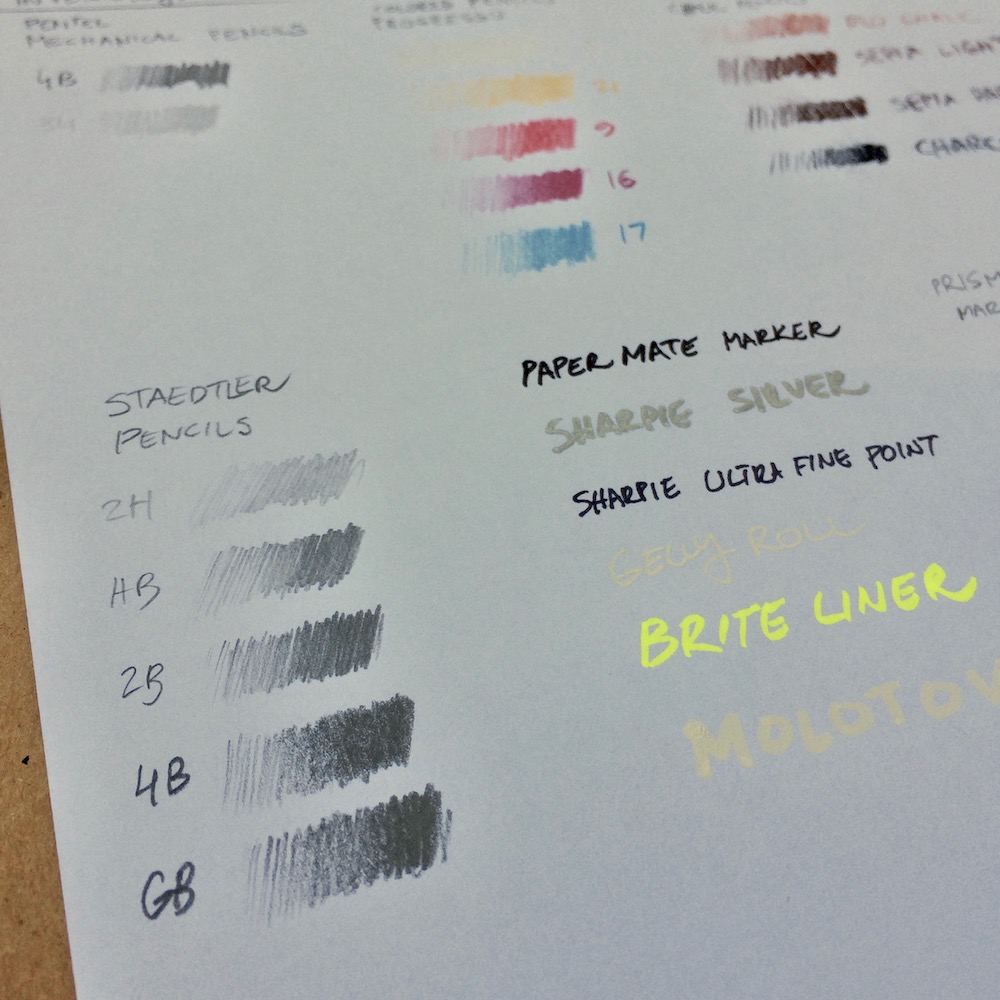 PENTEL
MECHANICAL PENCILS
4B
COLORED PENCILS
PROGRESSO
9
16
17
SEPIA LIGHT
SEPIA
STAEDTLER
PENCILS
2H
HB
2B
4B
6B
PAPER MATE MARKER
SHARPIE SILVER
SHARPIE ULTRA FINE POINT
GELLY ROLL
BRITE LINER
MOLOTOV